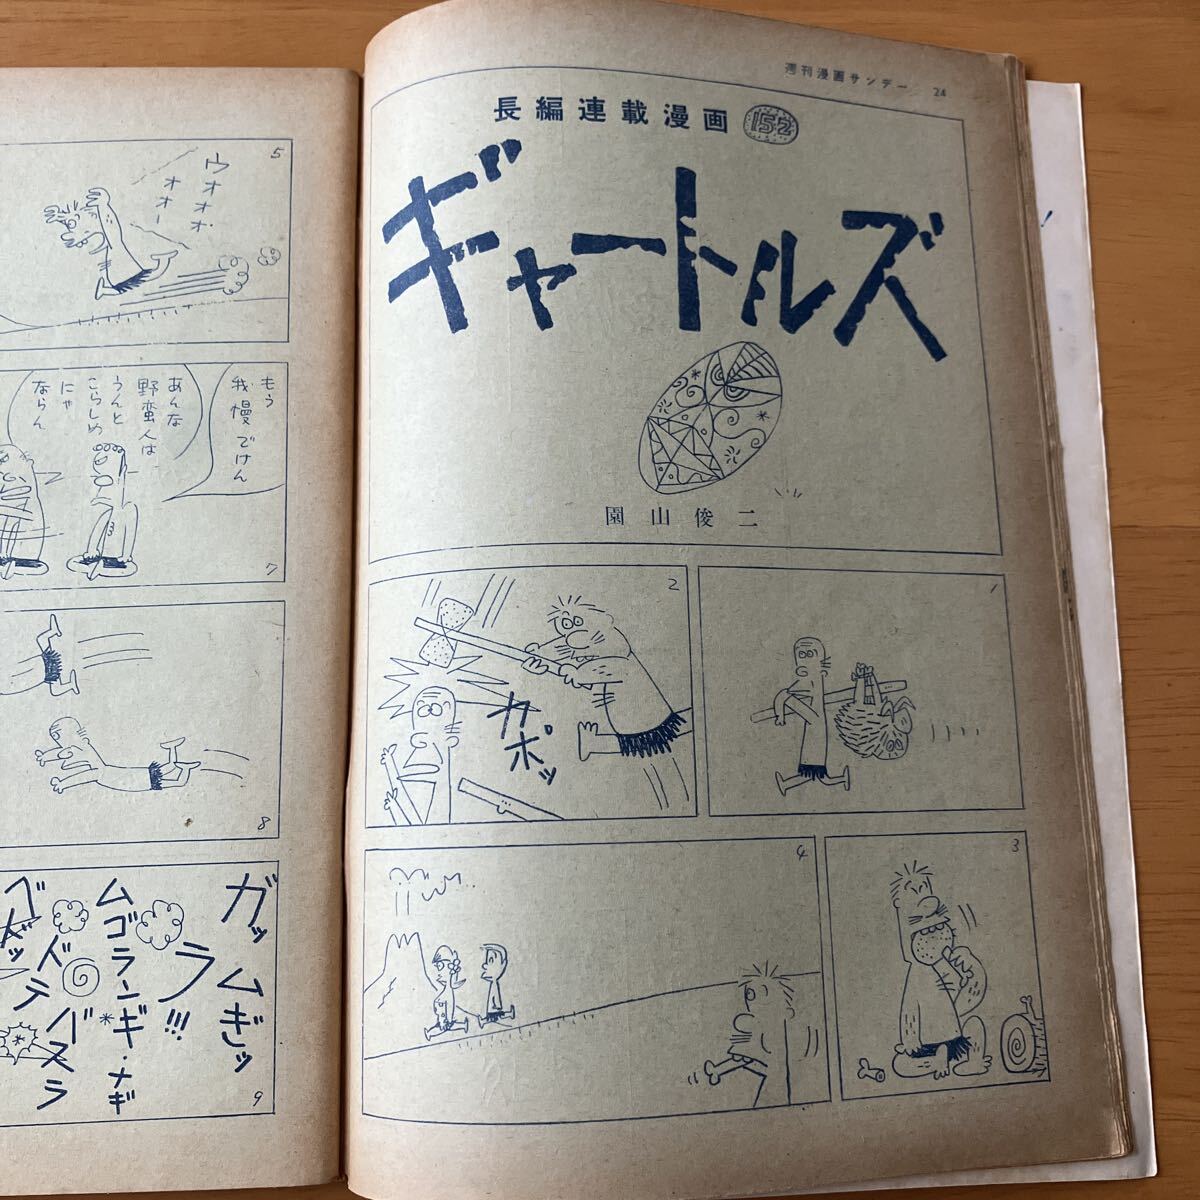 週刊漫画サンデー 24
長編連載漫画 152
ギャートルズ
園山俊二
1
2
カポッ
3
4
5
ウオオオ
オオー
もう
我慢でけん
あんな
野蛮人は
うんと
こらしめ
にゃ
ならん
7
8
ガッムギッ
ラ!!!
ムゴランギ・メギ
9